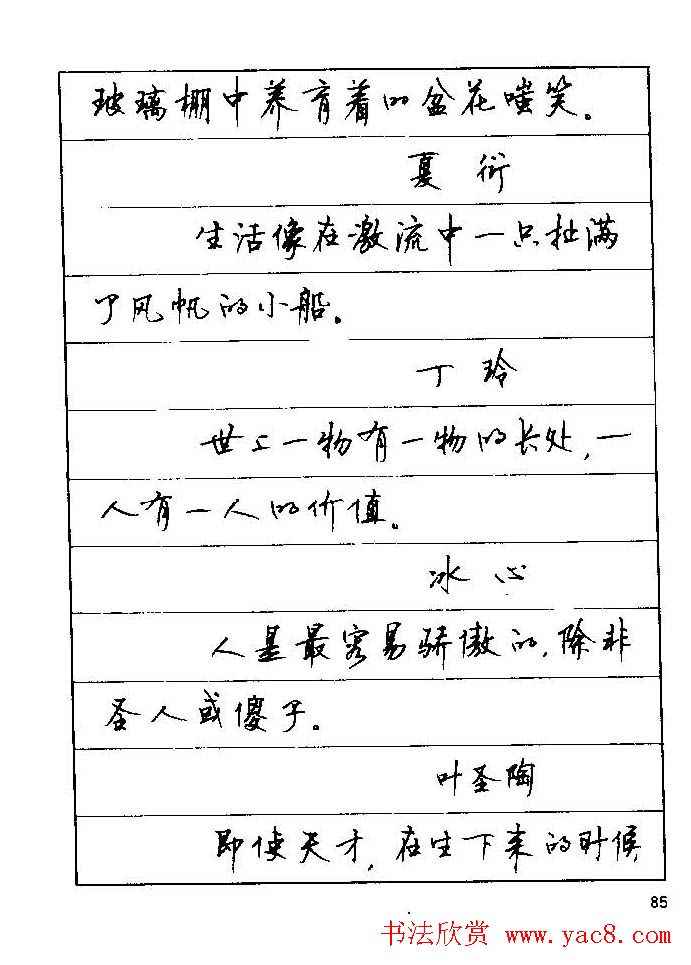 玻璃棚中养育着的盆花嗤笑。
夏衍
生活像在激流中一只扯满
了风帆的小船。
丁玲
世上一物有一物的长处,一
人有一人的价值。
冰心
人是最容易骄傲的,除非
圣人或傻子。
叶圣陶
即使天才,在生下来的时候
85
书法欣赏 www.yac8.com